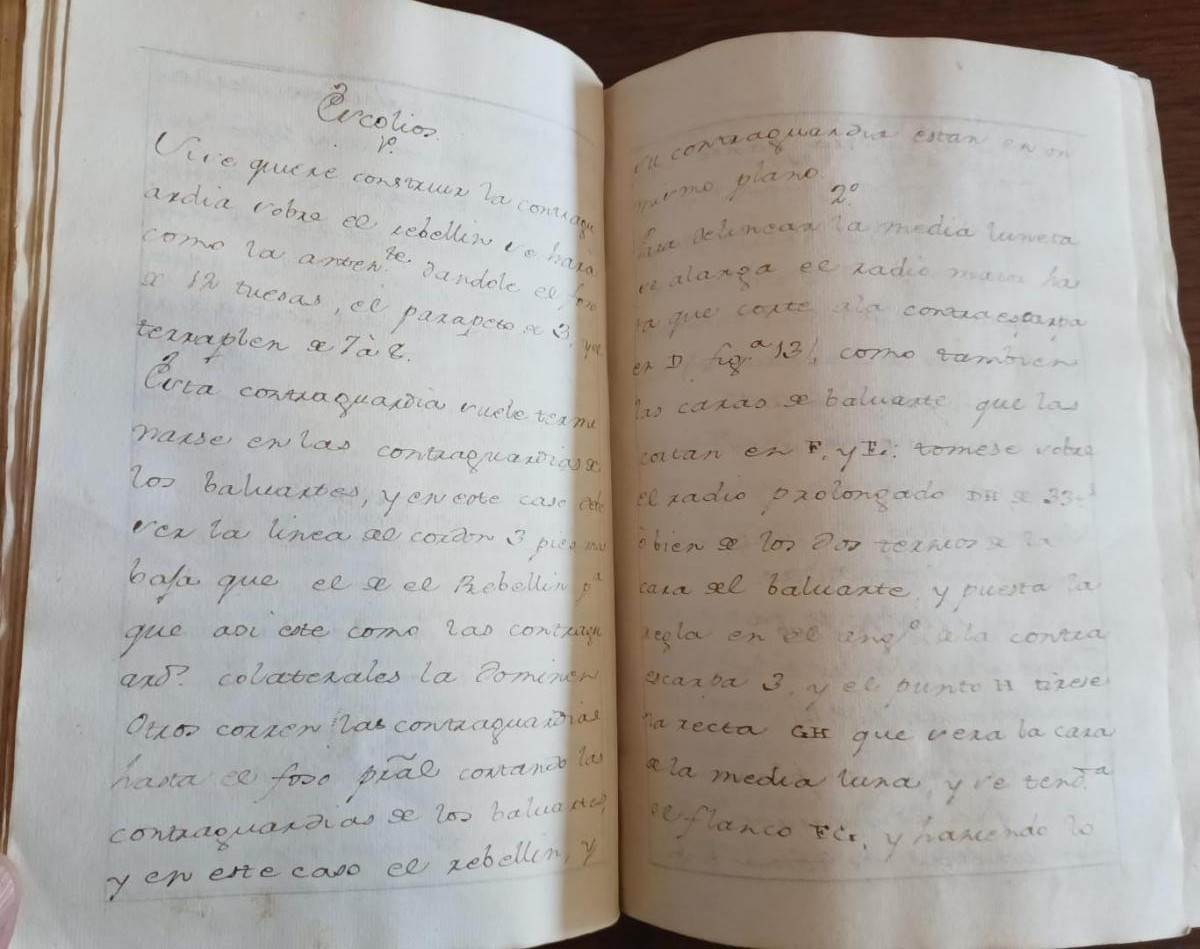 Escolios.
1º.
Si se quiere construir la contragu
ardia sobre el rebellin se hara
como la anten.te dandole el foso
de 12 tuesas, el parapeto de 3, y el
terraplen de 7 à 8.
Esta contraguardia suele termi
narse en las contraguardias de
los baluartes, y en este caso debe
ser la linea del cordon 3 pies mas
baja que el de el Rebellin p.a
que asi este como las contragu
ard.s colaterales la dominen
Otros corren las contraguardias
hasta el foso prãl cortando las
contraguardias de los baluartes,
y en este caso el rebellin, y
su contraguardia estan en un
mismo plano.
2º
Para delinear la media luneta
se alarga el radio maior has
ta que corte ala contraescarpa
en D (fig.a 13), como tambien
las caras de baluarte que las
cortan en F, y E: tomese sobre
el radio prolongado DH de 33
ò bien de los dos tercios de la
cara del baluarte, y puesta la
regla en el ang.o dela contra
escarpa 3, y el punto H tirese
la recta GH que sera la cara
dela media luna, y se tend.a
el flanco FG, y haciendo lo